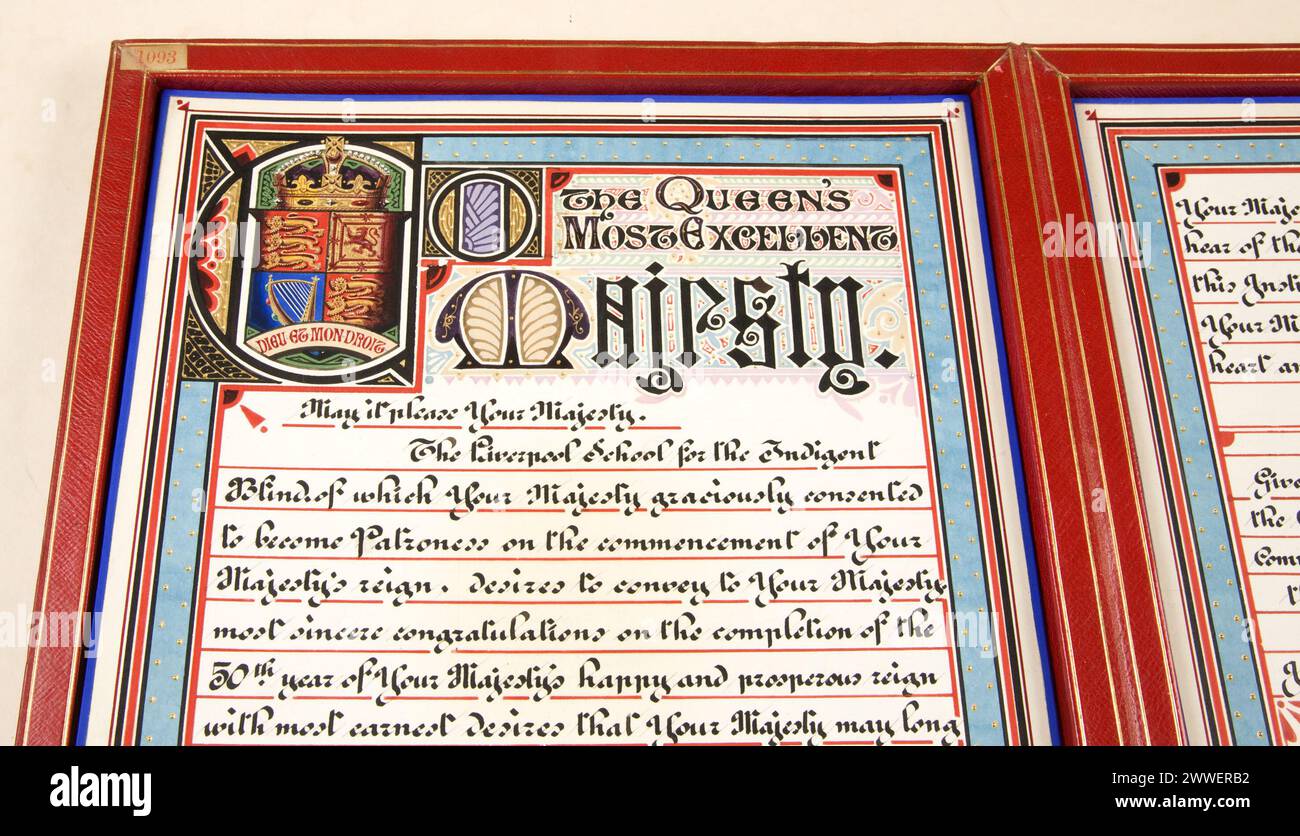 1093
TO THE QUEEN'S
MOST EXCELLENT
Majesty.
DIEU ET MON DROIT
May it please Your Majesty.
The Liverpool School for the Indigent
Blind of which Your Majesty graciously consented
to become Patroness on the commencement of Your
Majesty's reign, desires to convey to Your Majesty
most sincere congratulations on the completion of the
50th year of Your Majesty's happy and prosperous reign
with most earnest desires that Your Majesty may long
Your Maje
hear of the
this Insti
Your M
heart an
Give
the
Com
t
Y
alamy
Image ID: 2WWERB2
www.alamy.com